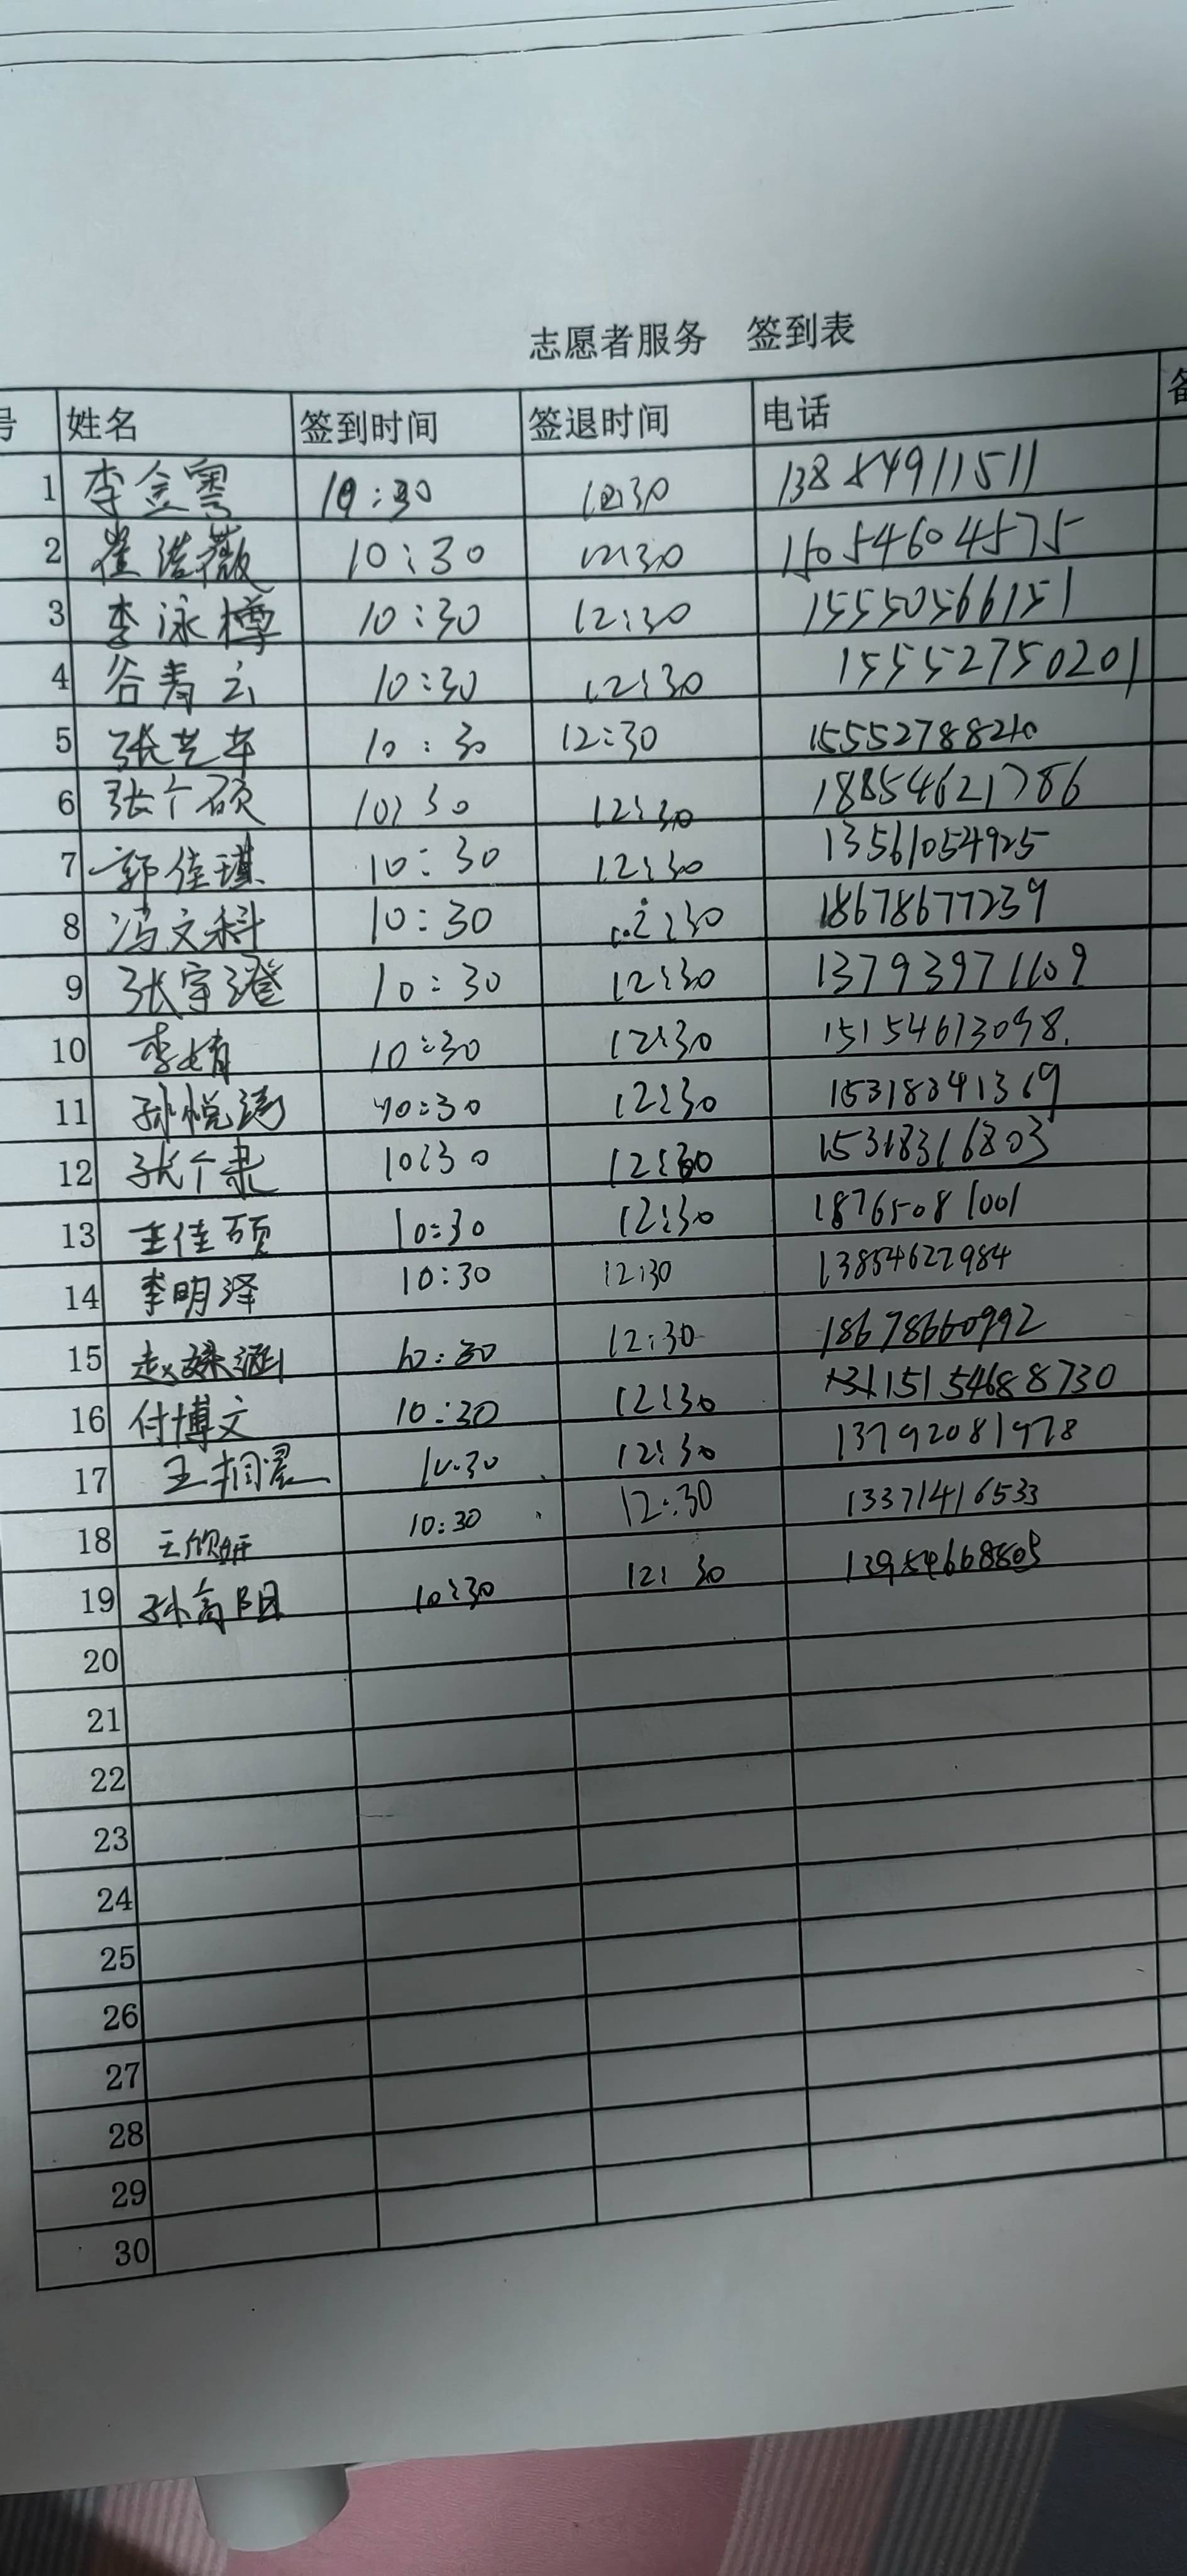 志愿者服务 签到表
号 姓名 签到时间 签退时间 电话 备
1 李金雩 10:30 12:30 13884911511
2 崔浩薇 10:30 12:30 15054604575
3 李泳樽 10:30 12:30 15550566151
4 谷青云 10:30 12:30 15552750201
5 张艺车 10:30 12:30 15552788210
6 张个硕 10:30 12:30 18854621786
7 郭佳琪 10:30 12:30 13561054925
8 冯文科 10:30 12:30 18678677239
9 张宇澄 10:30 12:30 13793971109
10 李婧 10:30 12:30 15154613098
11 孙悦涛 10:30 12:30 15318341369
12 张个隶 10:30 12:30 15318316803
13 王佳硕 10:30 12:30 18765081001
14 李明泽 10:30 12:30 13854622984
15 赵姝涵 10:30 12:30 18678660992
16 付博文 10:30 12:30 15154688730
17 王 10:30 12:30 13792081978
18 王欣妍 10:30 12:30 13371416533
19 孙高阳 10:30 12:30
20
21
22
23
24
25
26
27
28
29
30